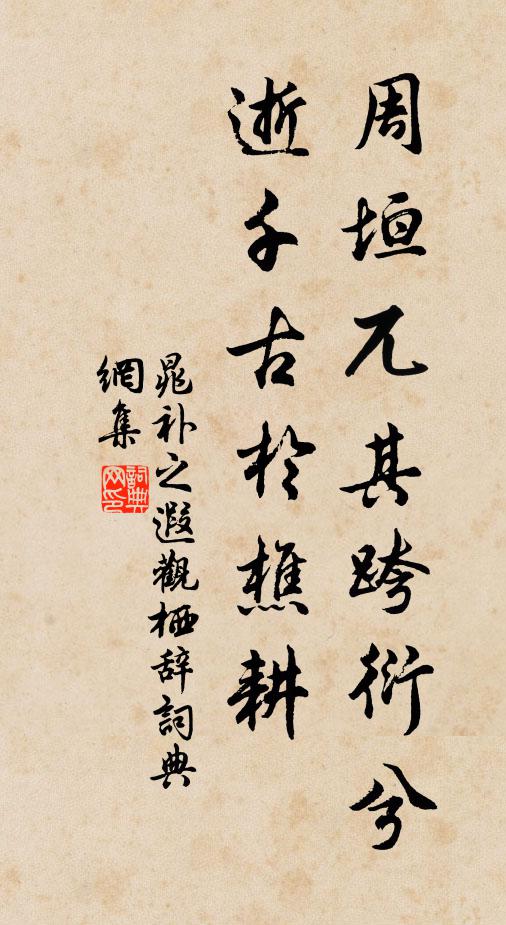 周垣兀其跨衍兮
逝千古於樵耕
晁补之遐觀栖辞詞典
網集
詞典
网印